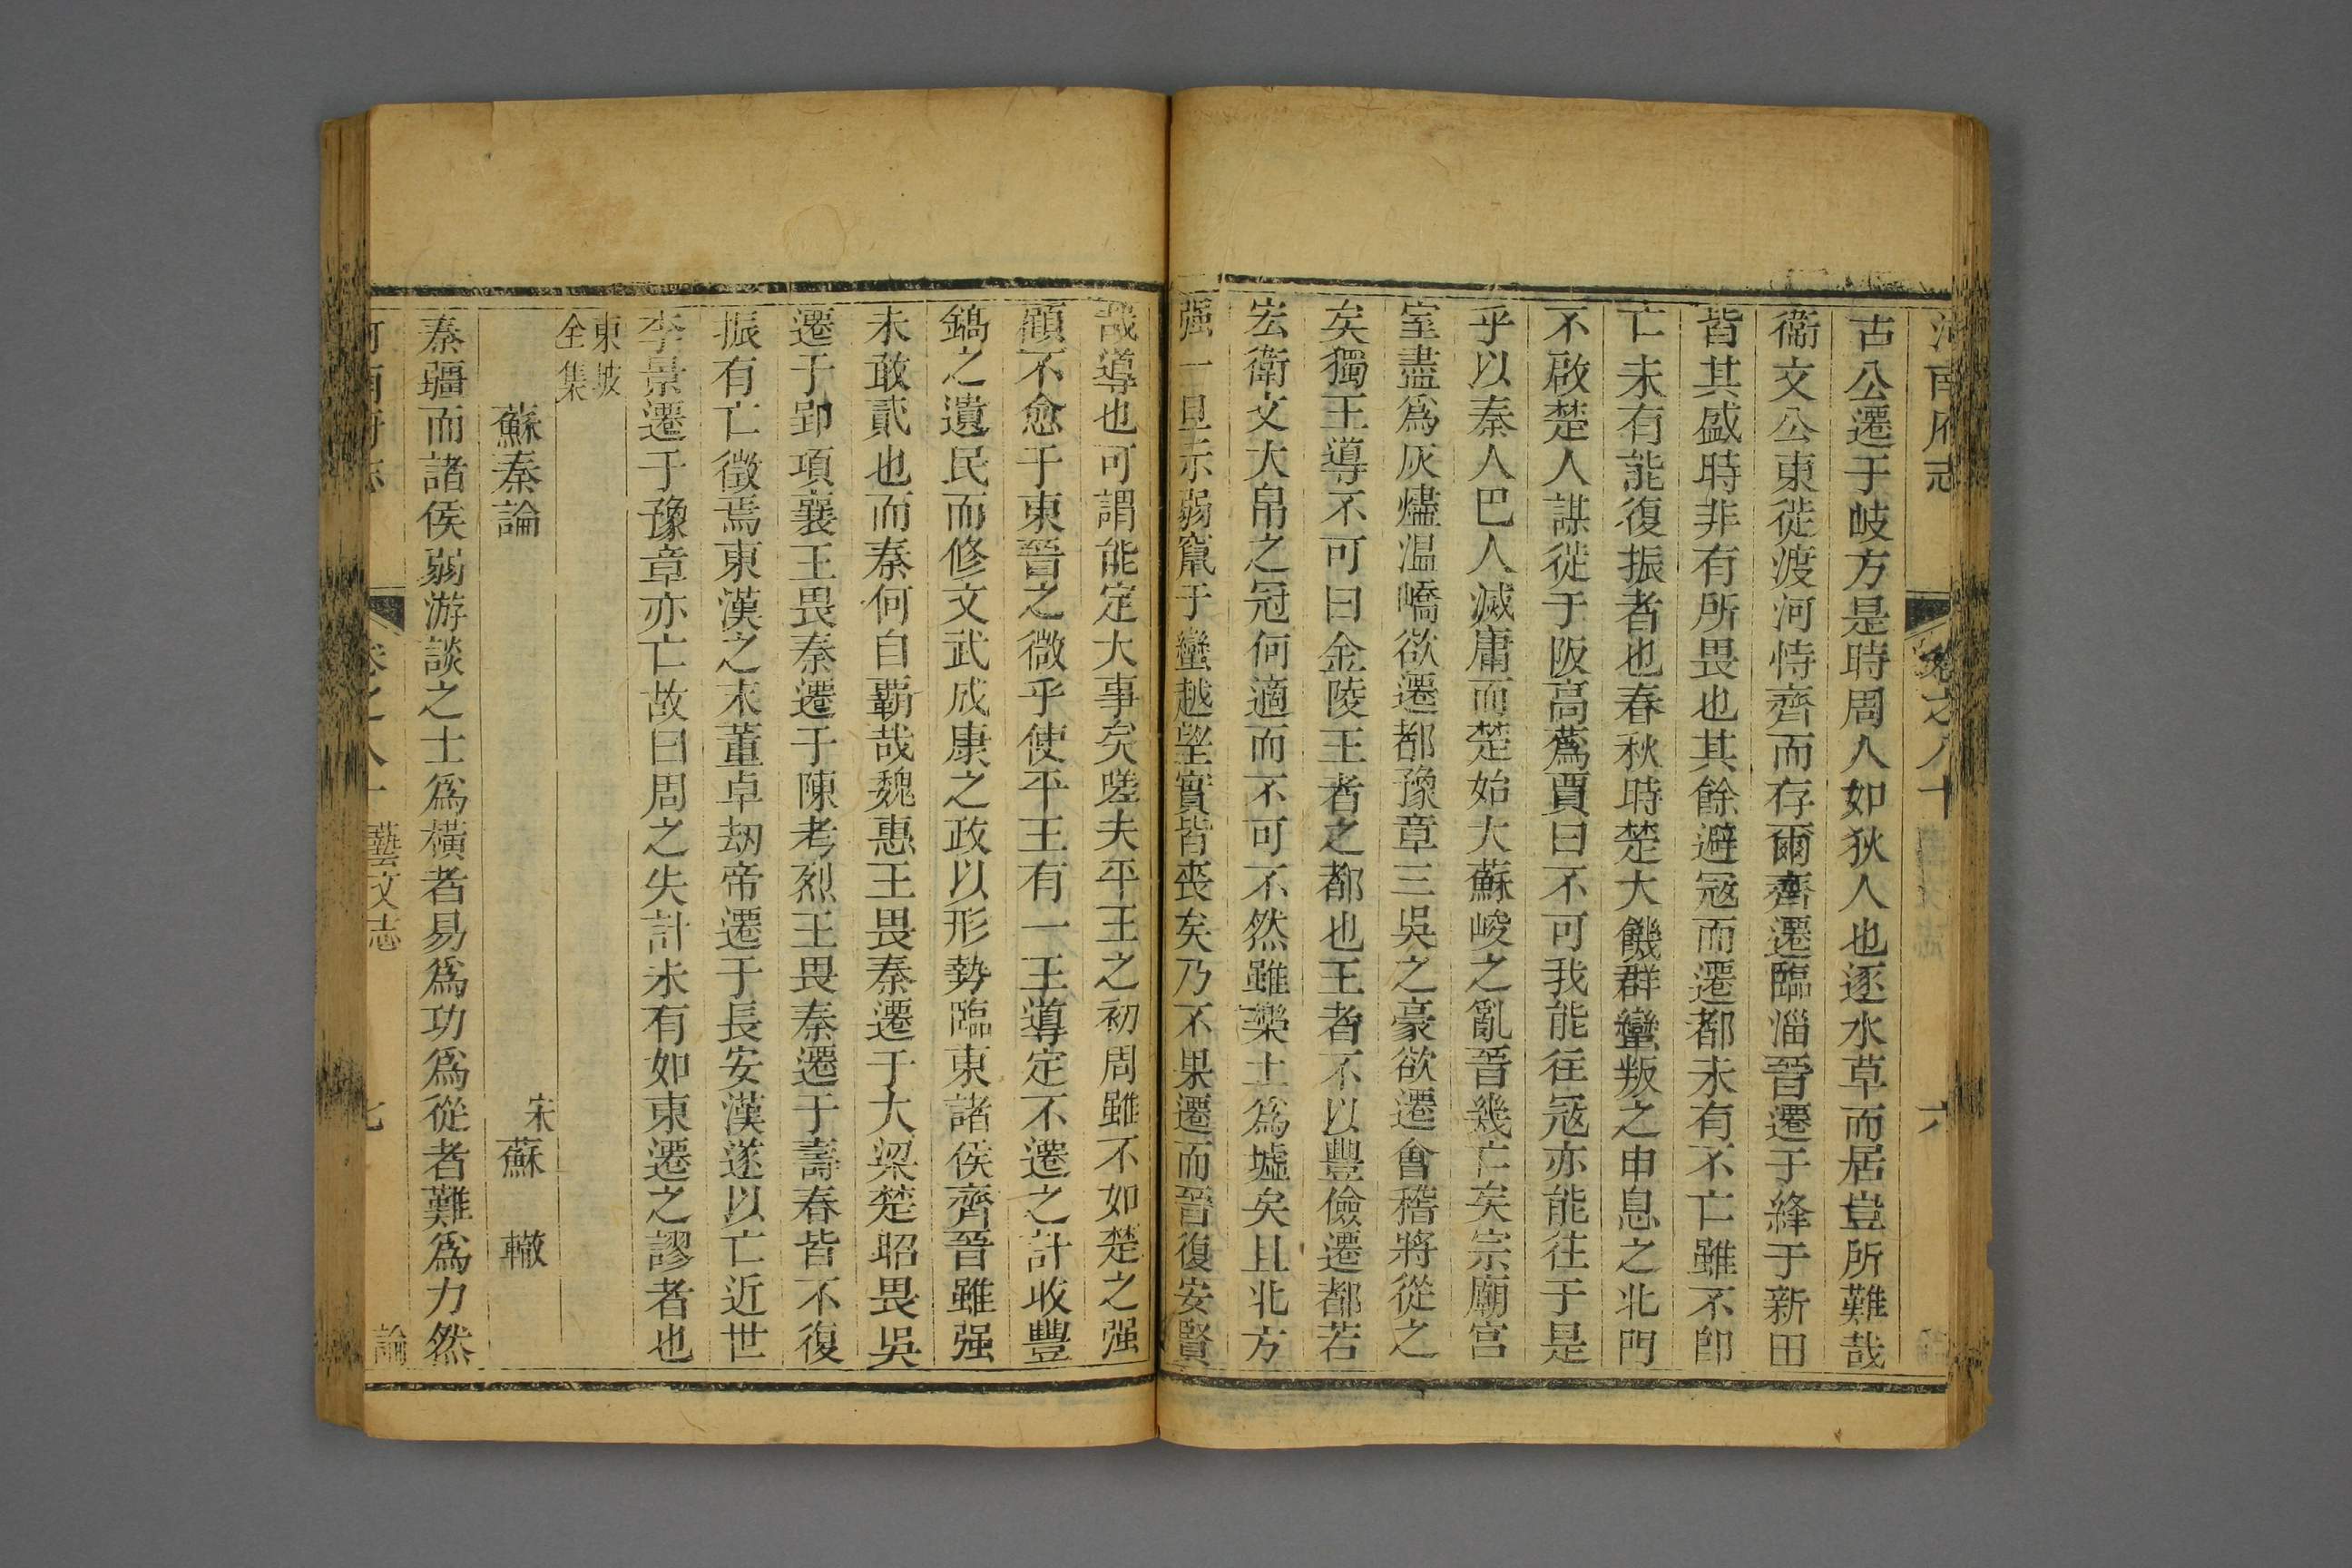 河南府志 卷之八十 六
古公遷于岐方是時周人如狄人也逐水草而居豈所難哉
衞文公東徙渡河恃齊而存爾齊遷臨淄晉遷于絳于新田
皆其盛時非有所畏也其餘避寇而遷都未有不亡雖不卽
亡未有能復振者也春秋時楚大饑群蠻叛之申息之北門
不啟楚人謀徙于阪高蔿賈曰不可我能往寇亦能往于是
乎以秦人巴人滅庸而楚始大蘇峻之亂晉幾亡矣宗廟宮
室盡爲灰燼温嶠欲遷都豫章三吳之豪欲遷會稽將從之
矣獨王導不可曰金陵王者之都也王者不以豐儉遷都若
宏衛文大帛之冠何適而不可不然雖樂土爲墟矣且北方
强一旦示弱竄于蠻越望實皆喪矣乃不果遷而晉復安賢
哉導也可謂能定大事矣嗟夫平王之初周雖不如楚之强
顧不愈于東晉之微乎使平王有一王導定不遷之計收豐
鎬之遺民而修文武成康之政以形勢臨東諸侯齊晉雖强
未敢貳也而秦何自霸哉魏惠王畏秦遷于大梁楚昭畏吳
遷于郢項襄王畏秦遷于陳考烈王畏秦遷于壽春皆不復
振有亡徵焉東漢之末董卓劫帝遷于長安漢遂以亡近世
李景遷于豫章亦亡故曰周之失計未有如東遷之謬者也
東坡
全集
蘇秦論 宋蘇 轍
秦疆而諸侯弱游談之士爲橫者易爲功爲從者難爲力然
河南府志 卷之八十 藝文志 七 論